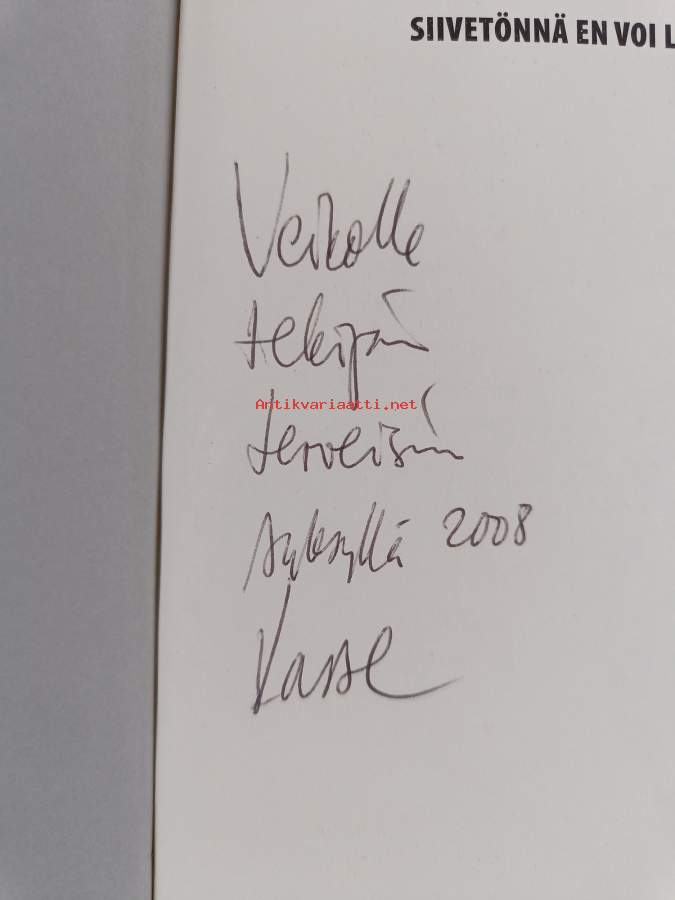 SIIVETÖNNÄ EN VOI L
Veikolle
tekijän
Antikvariaatti.net
terveisin
syksyllä 2008
Kasse